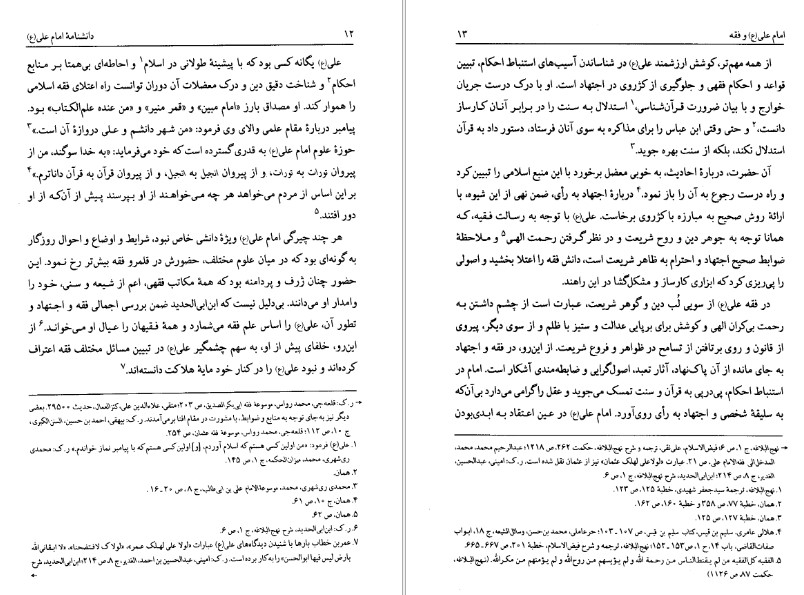 ۱۲ دانشنامهٔ امام علی(ع)
علی(ع) یگانه کسی بود که با پیشینهٔ طولانی در اسلام۱ و احاطه‌ای بی‌همتا بر منابع
احکام۲ و شناخت دقیق دین و درک معضلات آن دوران توانست راه اعتلای فقه اسلامی
را هموار کند. او مصداق بارز «امام مبین» و «قمر منیر» و «من عنده علم‌الکتاب» بود.
پیامبر دربارهٔ مقام علمی والای وی فرمود: «من شهر دانشم و علی دروازهٔ آن است.»۳
حوزهٔ علوم امام علی(ع) به قدری گسترده است که خود می‌فرماید: «به خدا سوگند، من از
پیروان تورات به تورات، و از پیروان انجیل به انجیل، و از پیروان قرآن به قرآن داناترم.»۴
بر این اساس از مردم می‌خواهد هر چه می‌خواهند از او بپرسند پیش از آن‌که از او
دور افتند.۵
هر چند چیرگی امام علی(ع) ویژهٔ دانشی خاص نبود، شرایط و اوضاع و احوال روزگار
به گونه‌ای بود که در میان علوم مختلف، حضورش در قلمرو فقه بیش‌تر رخ نمود. این
حضور چنان ژرف و پردامنه بود که همهٔ مکاتب فقهی، اعم از شیعه و سنی، خود را
وامدار او می‌دانند. بی‌دلیل نیست که ابن‌ابی‌الحدید ضمن بررسی اجمالی فقه و اجتهاد و
تطور آن، علی(ع) را اساس علم فقه می‌شمارد و همهٔ فقیهان را عیال او می‌خواند.۶ از
این‌رو، خلفای پیش از او، به سهم چشمگیر علی(ع) در تبیین مسائل مختلف فقه اعتراف
کرده‌اند و نبود علی(ع) را در کنار خود مایهٔ هلاکت دانسته‌اند.۷
→ ر.ک: قلعه‌جی، محمد رواس، موسوعة فقه ابی‌بکر الصدیق، ص ۲۰۳؛ متقی، علاءالدین علی، کنزالعمال، حدیث ۲۹۵۰۰. بعضی
دیگر نیز به جای توجه به منابع و ضوابط، با مشورت در مقام افتا برمی‌آمدند. ر.ک: بیهقی، احمد بن حسین، السنن الکبری،
ج ۱۰، ص ۱۱۲؛ قلعه‌جی، محمد رواس، موسوعة فقه عثمان، ص ۲۵۴.
۱. علی(ع) فرمود: «من اولین کسی هستم که اسلام آوردم. [و] اولین کسی هستم که با پیامبر نماز خواندم.» ر.ک: محمدی
ری‌شهری، محمد، میزان‌الحکمه، ج ۱، ص ۱۴۵.
۲. همان.
۳. محمدی ری‌شهری، محمد، موسوعة الامام علی بن ابی‌طالب، ج ۸، ص ۲۰ـ۱۶.
۴. همان، ج ۱۰، ص ۶۱.
۵. همان، ص ۶۲.
۶. ر.ک: ابن‌ابی‌الحدید، شرح نهج‌البلاغه، ج ۱، ص ۶.
۷. عمر بن خطاب بارها با شنیدن دیدگاه‌های علی(ع) عبارات «لولا علی لهلک عمر»، «لولاک لافتضحنا»، «لا ابقانی الله
بارض لیس فیها ابوالحسن» را به‌کار برده است. ر.ک: امینی، عبدالحسین بن احمد، الغدیر، ج ۸، ص ۲۱۴؛ ابن‌ابی‌الحدید، شرح
←
امام علی(ع) و فقه ۱۳
از همه مهم‌تر، کوشش ارزشمند علی(ع) در شناساندن آسیب‌های استنباط احکام، تبیین
قواعد و احکام فقهی و جلوگیری از کژروی در اجتهاد است. او با درک درست جریان
خوارج و با بیان ضرورت قرآن‌شناسی،۱ استدلال به سنت را در برابر آنان کارساز
دانست،۲ و حتی وقتی ابن عباس را برای مذاکره به سوی آنان فرستاد، دستور داد به قرآن
استدلال نکند، بلکه از سنت بهره جوید.۳
آن حضرت، دربارهٔ احادیث، به خوبی معضل برخورد با این منبع اسلامی را تبیین کرد
و راه درست رجوع به آن را باز نمود.۴ دربارهٔ اجتهاد به رأی، ضمن نهی از این شیوه، با
ارائهٔ روش صحیح به مبارزه با کژروی برخاست. علی(ع) با توجه به رسالت فقیه، که
همانا توجه به جوهر دین و روح شریعت و در نظر گرفتن رحمت الهی۵ و ملاحظهٔ
ضوابط صحیح اجتهاد و احترام به ظاهر شریعت است، دانش فقه را اعتلا بخشید و اصولی
را پی‌ریزی کرد که ابزاری کارساز و مشکل‌گشا در این راهند.
در فقه علی(ع) از سویی لُب دین و گوهر شریعت، عبارت است از چشم داشتن به
رحمت بی‌کران الهی و کوشش برای برپایی عدالت و ستیز با ظلم و از سوی دیگر، پیروی
از قانون و روی برتافتن از تسامح در ظواهر و فروع شریعت. از این‌رو، در فقه و اجتهاد
به جای مانده از آن پاک‌نهاد، آثار تعبد، اصول‌گرایی و ضابطه‌مندی آشکار است. امام در
استنباط احکام، پی‌درپی به قرآن و سنت تمسک می‌جوید و عقل را گرامی می‌دارد بی‌آن‌که
به سلیقهٔ شخصی و اجتهاد به رأی روی‌آورد. امام علی(ع) در عین اعتقاد به ابدی‌بودن
→ نهج‌البلاغه، ج ۱، ص ۶؛ فیض‌الاسلام، علی‌نقی، ترجمه و شرح نهج‌البلاغه، حکمت ۲۶۲، ص ۱۲۱۸؛ عبدالرحیم محمد، محمد،
المدخل الی فقه الامام علی، ص ۲۱. عبارت «لولا علی لهلک عثمان» نیز از عثمان نقل شده است. ر.ک: امینی، عبدالحسین،
الغدیر، ج ۸، ص ۲۱۴؛ ابن‌ابی‌الحدید، شرح نهج‌البلاغه، ج ۱، ص ۶.
۱. نهج‌البلاغه، ترجمهٔ سیدجعفر شهیدی، خطبهٔ ۱۲۵، ص ۱۲۳.
۲. همان، خطبهٔ ۷۷، ص ۳۵۸ و خطبهٔ ۱۶۰، ص ۱۶۲.
۳. همان، خطبهٔ ۱۲۷، ص ۱۲۵.
۴. هلالی عامری، سلیم بن قیس، کتاب سلیم بن قیس، ص ۱۰۷ـ۱۰۳؛ حر عاملی، محمد بن حسن، وسائل‌الشیعه، ج ۱۸، ابواب
صفات‌القاضی، باب ۱۴، ح ۱، ص ۱۵۳ـ۱۵۲؛ نهج‌البلاغه، ترجمه و شرح فیض‌الاسلام، خطبهٔ ۲۰۱، ص ۶۶۷ـ۶۶۵.
۵. الفقیه کل الفقیه من لم یقنط الناس من رحمة الله و لم یؤیسهم من روح‌الله و لم یؤمنهم من مکرالله. (نهج‌البلاغه،
حکمت ۸۷، ص ۱۱۲۶)